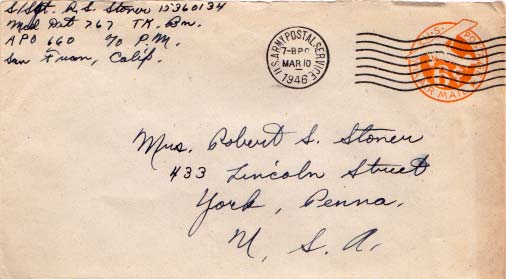 S/Sgt. R. S. Stoner 15360134
Med Det 767 TK. Bn.
APO 660 c/o P.M.
San Fran, Calif.
U.S. ARMY POSTAL SERVICE
7-BPO
MAR 10
1946
U.S. POSTAGE
AIR MAIL
Mrs. Robert S. Stoner
433 Lincoln Street
York, Penna.
U. S. A.